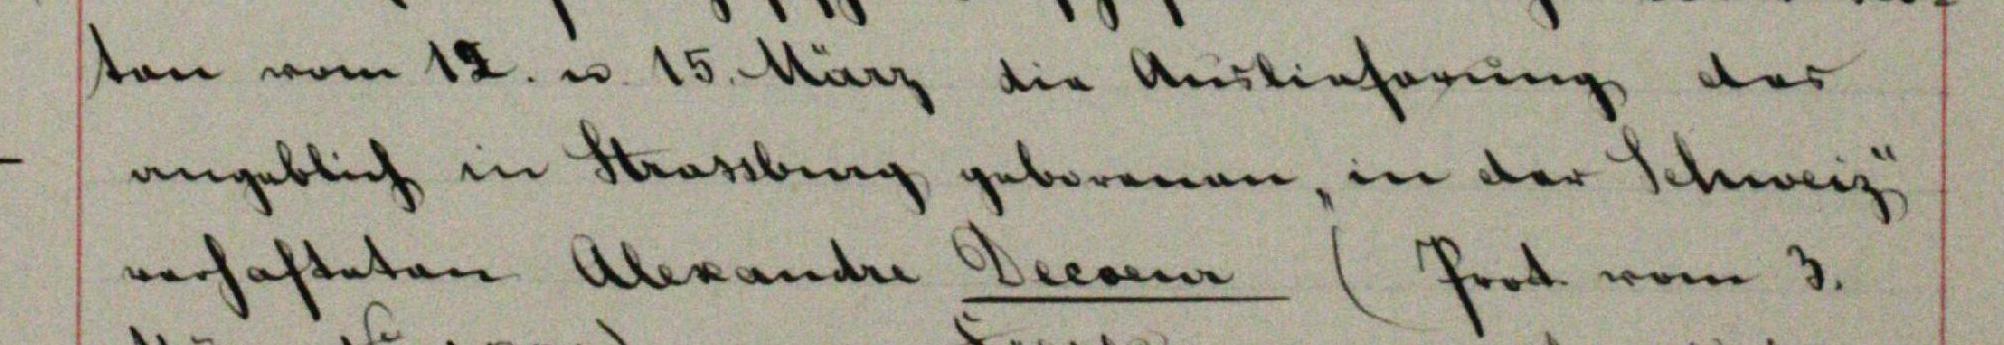 ten vom 12. u. 15. März die Auslieferung des
angeblich in Strassburg geborenen, „in der Schweiz“
verhafteten Alexandre Decoeur (Prot. vom 3.